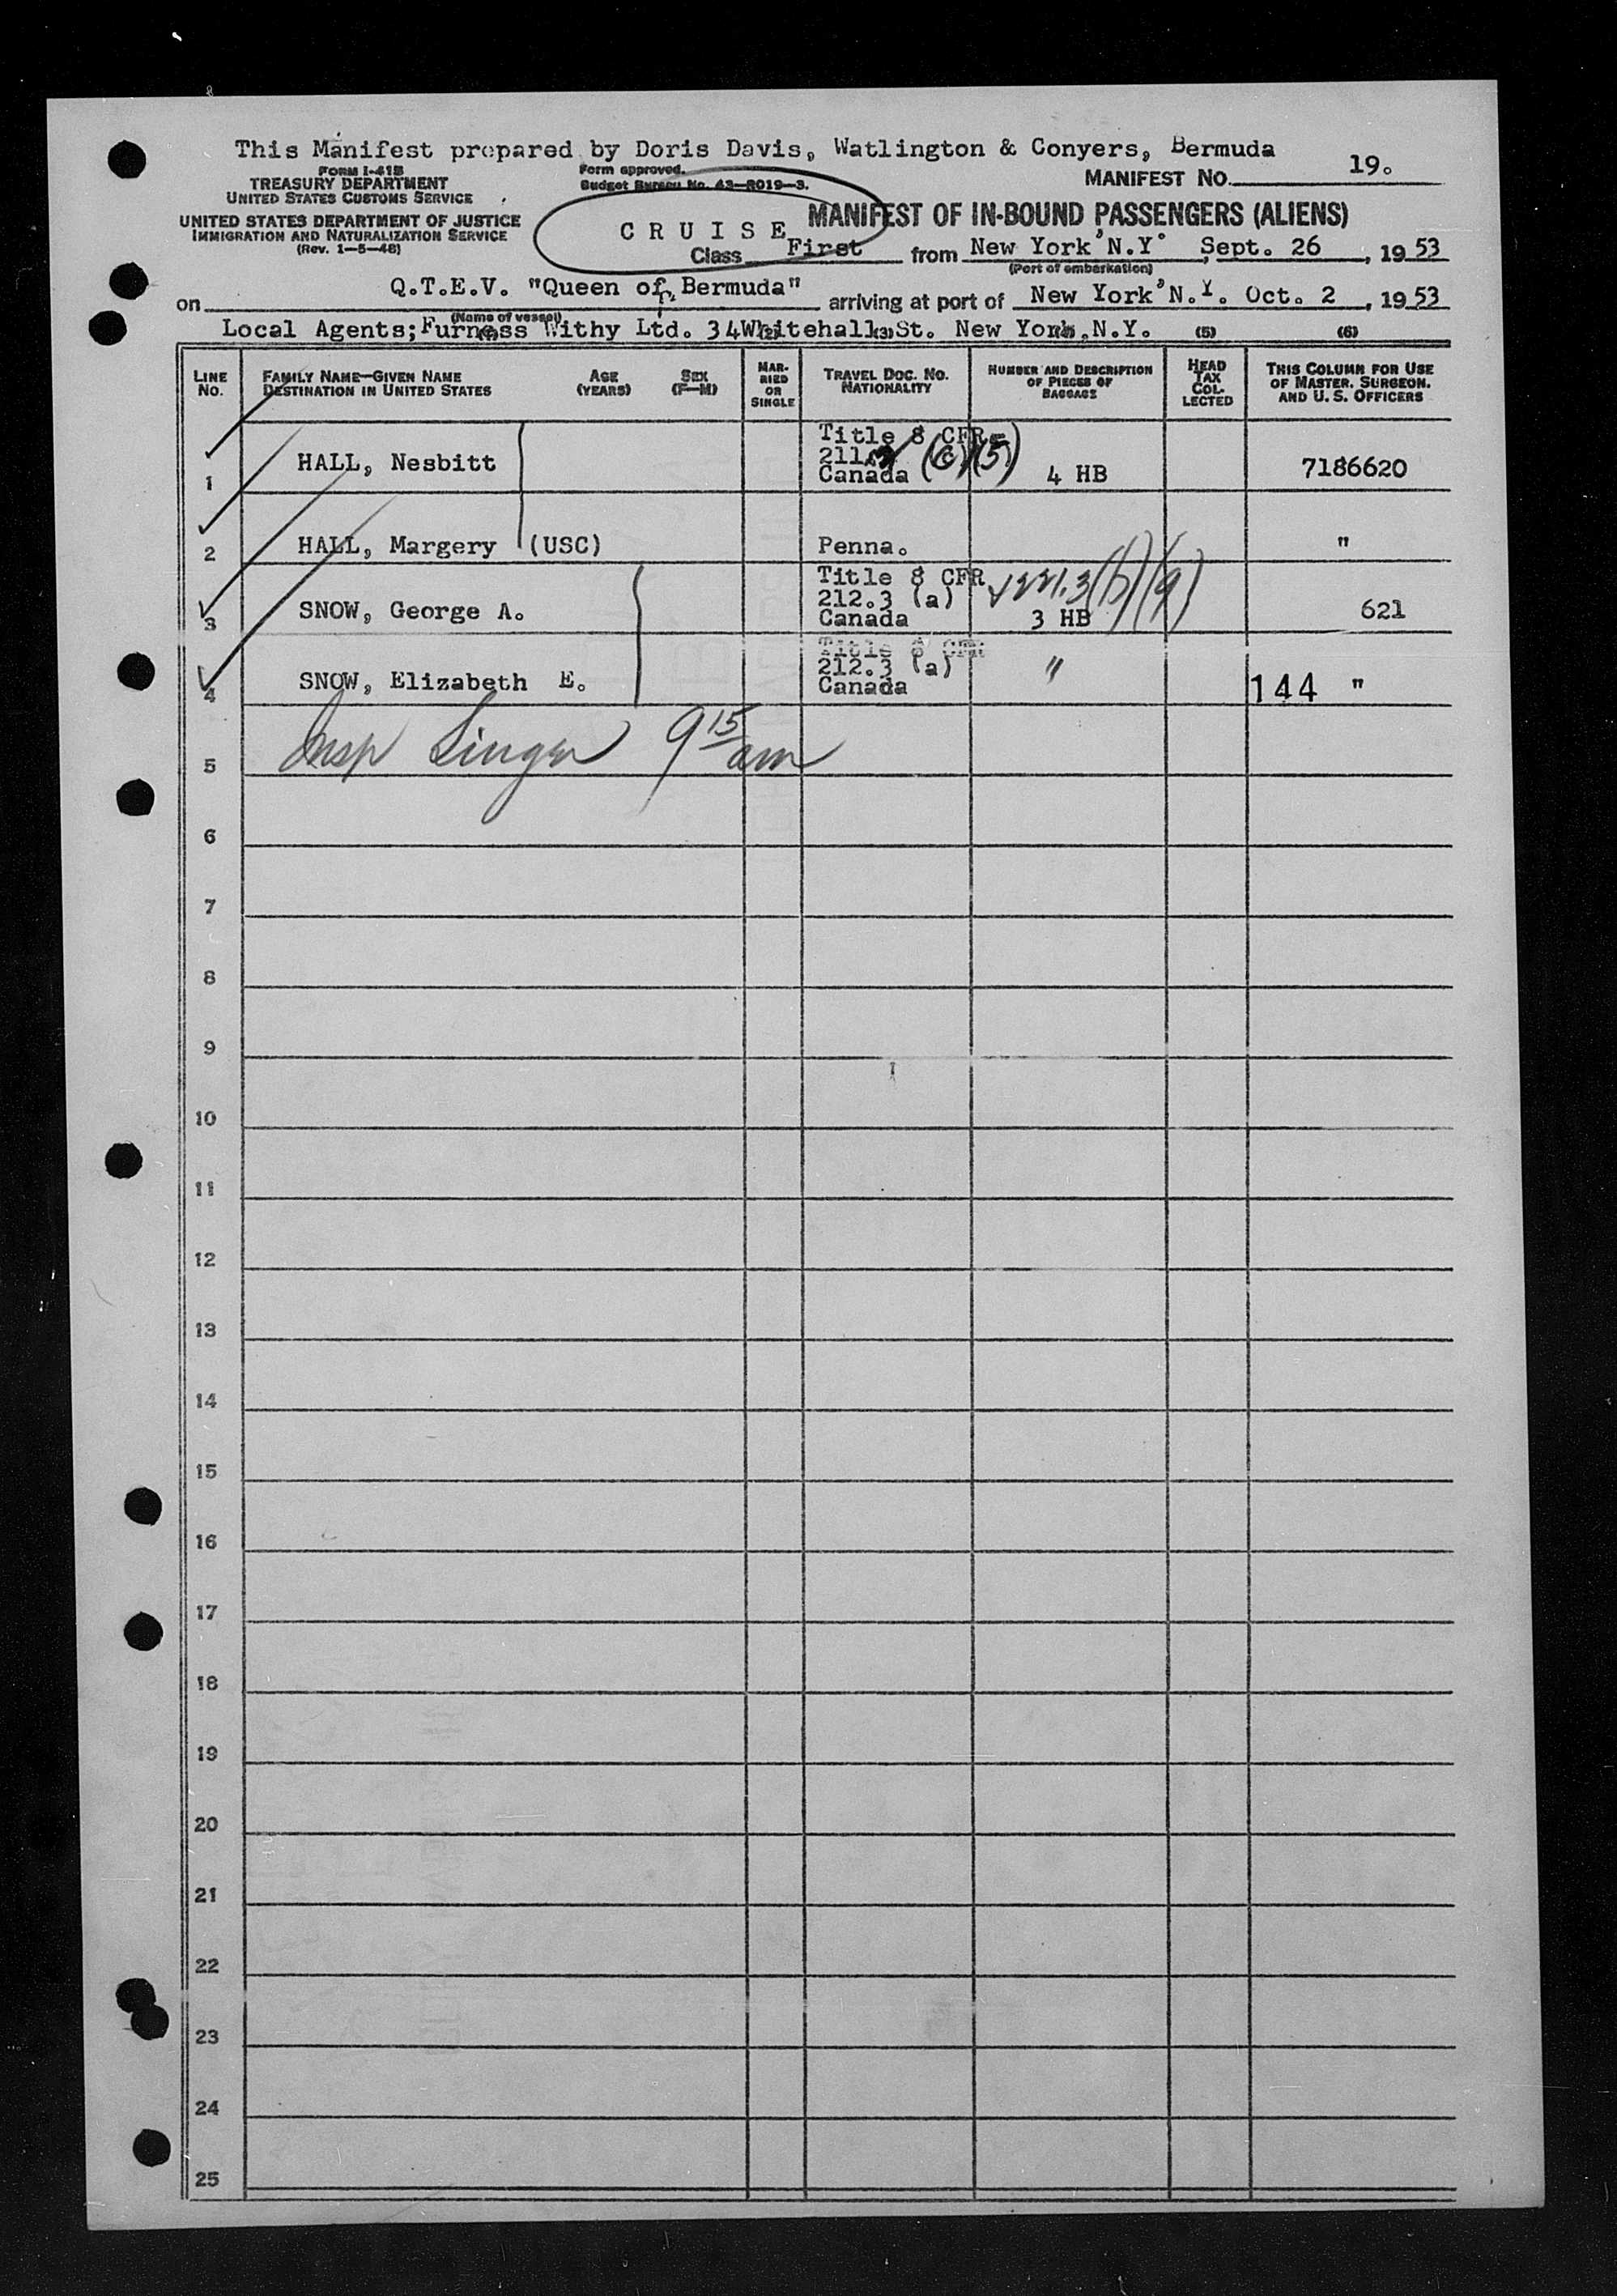 This Manifest prepared by Doris Davis, Watlington & Conyers, Bermuda
FORM I-415
TREASURY DEPARTMENT
UNITED STATES CUSTOMS SERVICE
UNITED STATES DEPARTMENT OF JUSTICE
IMMIGRATION AND NATURALIZATION SERVICE
(Rev. 1-5-48)
Form approved.
Budget Bureau No. 43-R019-3.
MANIFEST NO. 19.
CRUISE
MANIFEST OF IN-BOUND PASSENGERS (ALIENS)
Class First from New York, N.Y. Sept. 26, 1953
(Port of embarkation)
on Q.T.E.V. "Queen of Bermuda" arriving at port of New York, N.Y. Oct. 2, 1953
(Name of vessel)
Local Agents; Furness Withy Ltd. 34 Whitehall St. New York, N.Y.
(3) (5) (6)
LINE NO. FAMILY NAME-GIVEN NAME DESTINATION IN UNITED STATES AGE (YEARS) SEX (F-M) MARRIED OR SINGLE TRAVEL DOC. NO. NATIONALITY NUMBER AND DESCRIPTION OF PIECES OF BAGGAGE HEAD TAX COLLECTED THIS COLUMN FOR USE OF MASTER, SURGEON, AND U. S. OFFICERS
Title 8 CFR
211. (c)(5)
1 HALL, Nesbitt Canada 4 HB 7186620
2 HALL, Margery (USC) Penna. "
Title 8 CFR
212.3 (a)
3 SNOW, George A. Canada 3 HB 621
Title 8 CFR
212.3 (a) "
4 SNOW, Elizabeth E. Canada 144 "
5 Insp Singer 9 15 am
6
7
8
9
10
11
12
13
14
15
16
17
18
19
20
21
22
23
24
25